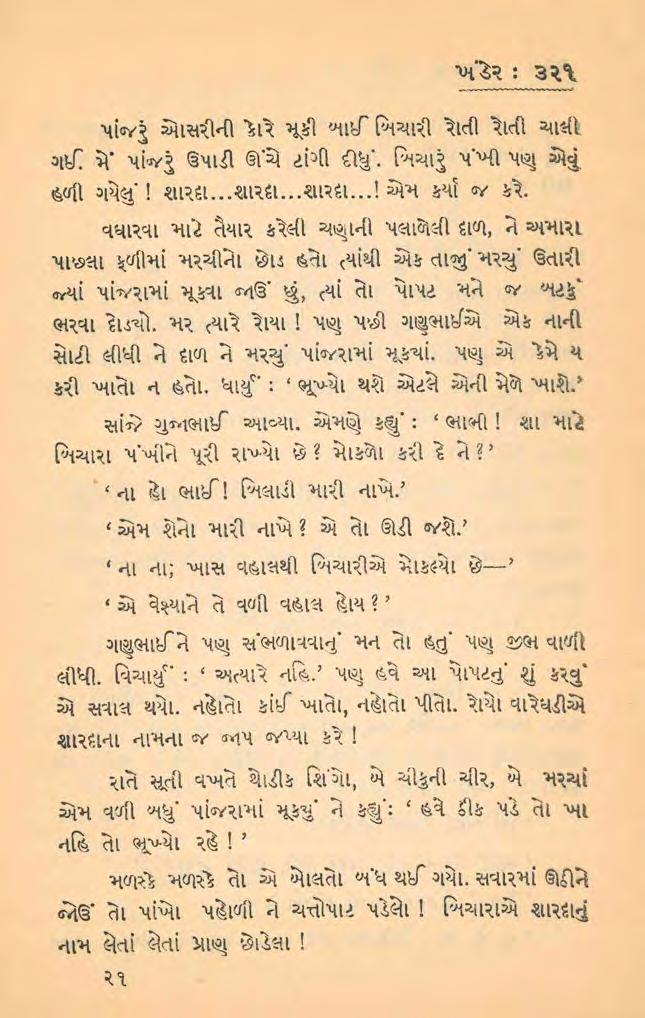 ખંડેર : ૩૨૧
પાંજરું ઓસરીની કોરે મૂકી બાઈ બિચારી રોતી રોતી ચાલી
ગઈ. મેં પાંજરું ઉપાડી ઊંચે ટાંગી દીધું. બિચારું પંખી પણ એવું
હળી ગયેલું ! શારદા...શારદા...શારદા...! એમ કર્યા જ કરે.
વઘારવા માટે તૈયાર કરેલી ચણાની પલાળેલી દાળ, ને અમારા
પાછલા ફળીમાં મરચીનો છોડ હતો ત્યાંથી એક તાજું મરચું ઉતારી
જ્યાં પાંજરામાં મૂકવા જાઉં છું, ત્યાં તો પોપટ મને જ બટકું
ભરવા દોડ્યો. મર ત્યારે રોયા ! પણ પછી ગણુભાઈએ એક નાની
સોટી લીધી ને દાળ ને મરચું પાંજરામાં મૂક્યાં. પણ એ કેમે ય
કરી ખાતો ન હતો. ધાર્યું : ‘ ભૂખ્યો થશે એટલે એની મેળે ખાશે.’
સાંજે ગુજાભાઈ આવ્યા. એમણે કહ્યું : ‘ ભાભી ! શા માટે
બિચારા પંખીને પૂરી રાખ્યો છે ? મોકળો કરી દે ને ? ’
‘ ના હો ભાઈ ! બિલાડી મારી નાખે.’
‘ એમ શેનો મારી નાખે ? એ તો ઊડી જશે.’
‘ ના ના; ખાસ વહાલથી બિચારીએ મોકલ્યો છે—’
‘ એ વેશ્યાને તે વળી વહાલ હોય ? ’
ગણુભાઈને પણ સંભળાવવાનું મન તો હતું પણ જીભ વાળી
લીધી. વિચાર્યું : ‘ અત્યારે નહિ.’ પણ હવે આ પોપટનું શું કરવું
એ સવાલ થયો. નહોતો કાંઈ ખાતો, નહોતો પીતો. રોયો વારેઘડીએ
શારદાના નામના જ જાપ જપ્યા કરે !
રાતે સૂતી વખતે થોડીક શિંગો, બે ચીકુની ચીર, બે મરચાં
એમ વળી બધું પાંજરામાં મૂક્યું ને કહ્યું: ‘ હવે ઠીક પડે તો ખા
નહિ તો ભૂખ્યો રહે ! ’
મળસ્કે મળસ્કે તો એ બોલતો બંધ થઈ ગયો. સવારમાં ઊઠીને
જોઉં તો પાંખો પહોળી ને ચત્તોપાટ પડેલો ! બિચારાએ શારદાનું
નામ લેતાં લેતાં પ્રાણ છોડેલા !
૨૧